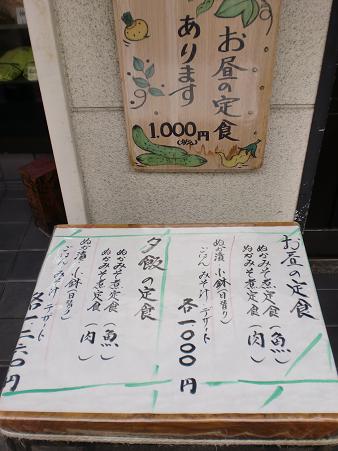 お昼の定食
あります
1.000円
お昼の定食
ぬかみそ煮定食(魚)
ぬかみそ煮定食(肉)
ぬか漬 小鉢(日替り)
ごはん みそ汁 デザート
各1000円
夕飯の定食
ぬかみそ煮定食(魚)
ぬかみそ煮定食(肉)
ぬか漬 小鉢(日替り)
ごはん みそ汁 デザート